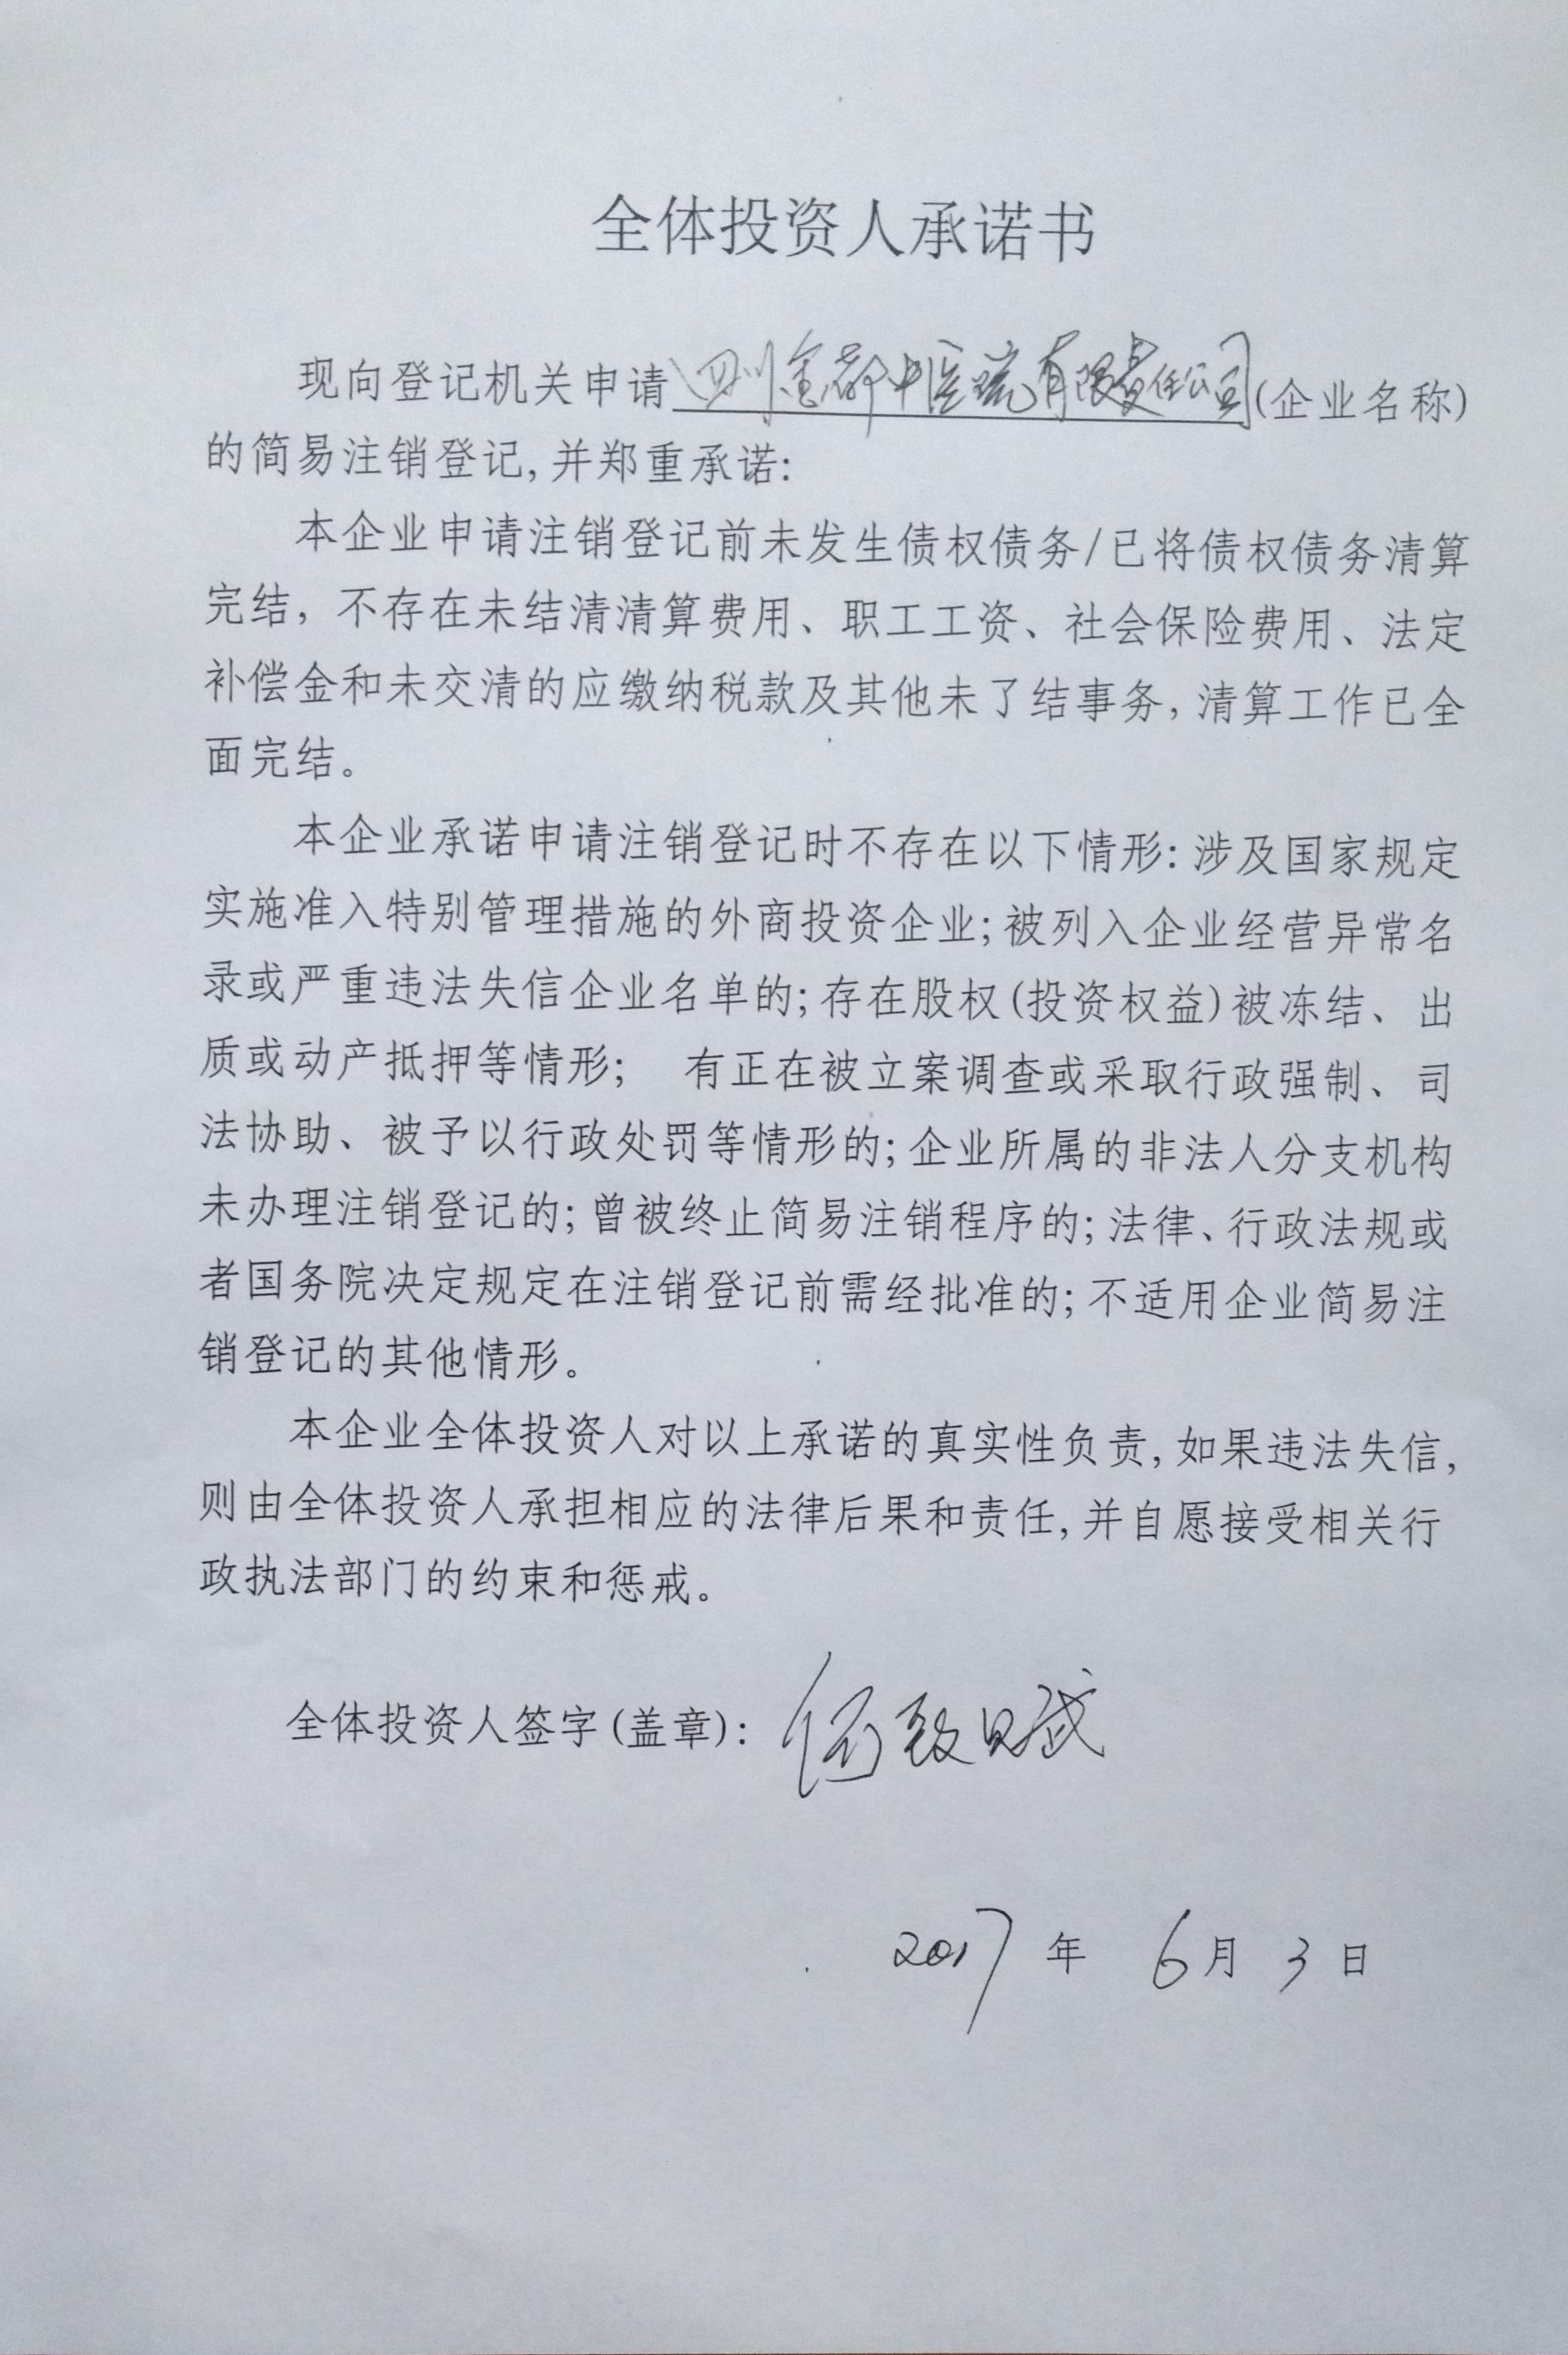 全体投资人承诺书
现向登记机关申请四川金都中医院有限责任公司(企业名称)
的简易注销登记,并郑重承诺:
本企业申请注销登记前未发生债权债务/已将债权债务清算
完结，不存在未结清清算费用、职工工资、社会保险费用、法定
补偿金和未交清的应缴纳税款及其他未了结事务,清算工作已全
面完结。
本企业承诺申请注销登记时不存在以下情形:涉及国家规定
实施准入特别管理措施的外商投资企业;被列入企业经营异常名
录或严重违法失信企业名单的;存在股权(投资权益)被冻结、出
质或动产抵押等情形; 有正在被立案调查或采取行政强制、司
法协助、被予以行政处罚等情形的;企业所属的非法人分支机构
未办理注销登记的;曾被终止简易注销程序的;法律、行政法规或
者国务院决定规定在注销登记前需经批准的;不适用企业简易注
销登记的其他情形。
本企业全体投资人对以上承诺的真实性负责,如果违法失信,
则由全体投资人承担相应的法律后果和责任,并自愿接受相关行
政执法部门的约束和惩戒。
全体投资人签字(盖章):
2017年 6月3日